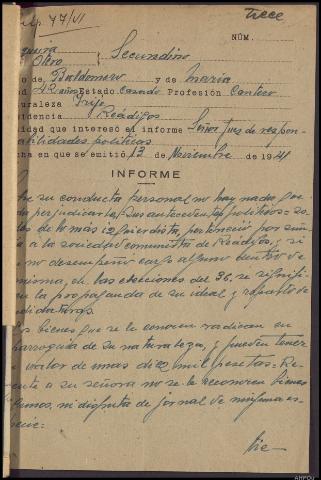 Exp. 77/VI
trece
NÚM.
gueira
Otero } Secundino
o de Baldomero y de Maria
d 42 años Estado Casado Profesión Cantero
uraleza Grijo
idencia Reádigos
idad que interesó el informe Señor Jues de respon-
abilidades politicas
cha en que se emitió 13 de Noviembre de 1941
INFORME
re su conducta personal no hay nada que
da perjudicarle, Sus antecedentes politicos = so-
de lo mas izquierdista, perteneció por
a a la sociedad comunista de Reádigos, y si
no desempeñó cargo alguno dentro de
misma, en las elecciones del 36. se signifi-
en la propaganda de su ideal y reparto de
didaturas.
os bienes que se le conocen radican en
parroquia de su naturaleza, y pueden tener
valor de unas diez mil pesetas = Re-
ente a su señora no se le reconocen bienes
ni disfruta de jornal de ninguna es-
ecie:
Die-